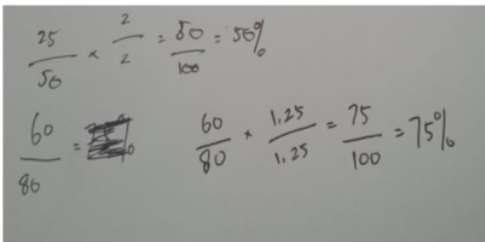 25/50 × 2/2 = 50/100 = 50%
60/80 =
60/80 × 1.25/1.25 = 75/100 = 75%